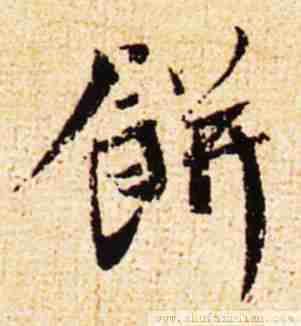 餅
www.shufazidian.com